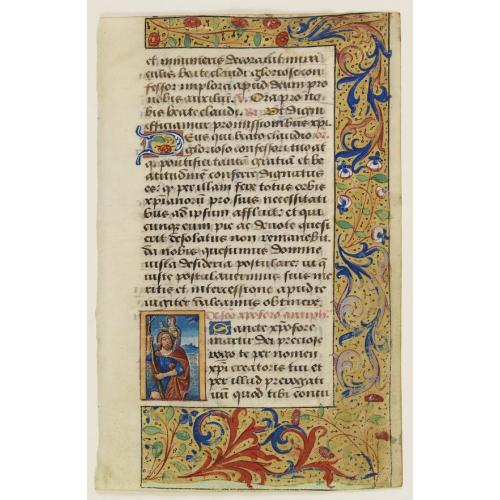 et innumeris decoravit mira
culis beate claudi gloriose con
fessor implora apud deum pro
nobis auxiliū. V. Ora pro no
bis beate claudi. Ut digni
efficiamur promissionibus xpi.
Deus qui beato claudio
glorioso confessori tuo at
qȝ pontifici tantam gratiam et be
atitudinem conferre dignatus
es: qȝ per illam fere totus orbis
xpianorū pro suis necessitati
bus ad ipsum affluit: et qui
cunque eum pie ac devote quesi
erit desolatus non remanebit.
da nobis quesumus domine
iusta desideria postulare: ut q
iuste postulaverimus suis me
ritis et intercessione apud te
iugiter valeamus obtinere.
De sco xpoforo antiph.
Sancte xpofore
martir dei preciose
rogo te per nomen
xpi creatoris tui et
per illud prerogati
vū quod tibi contu